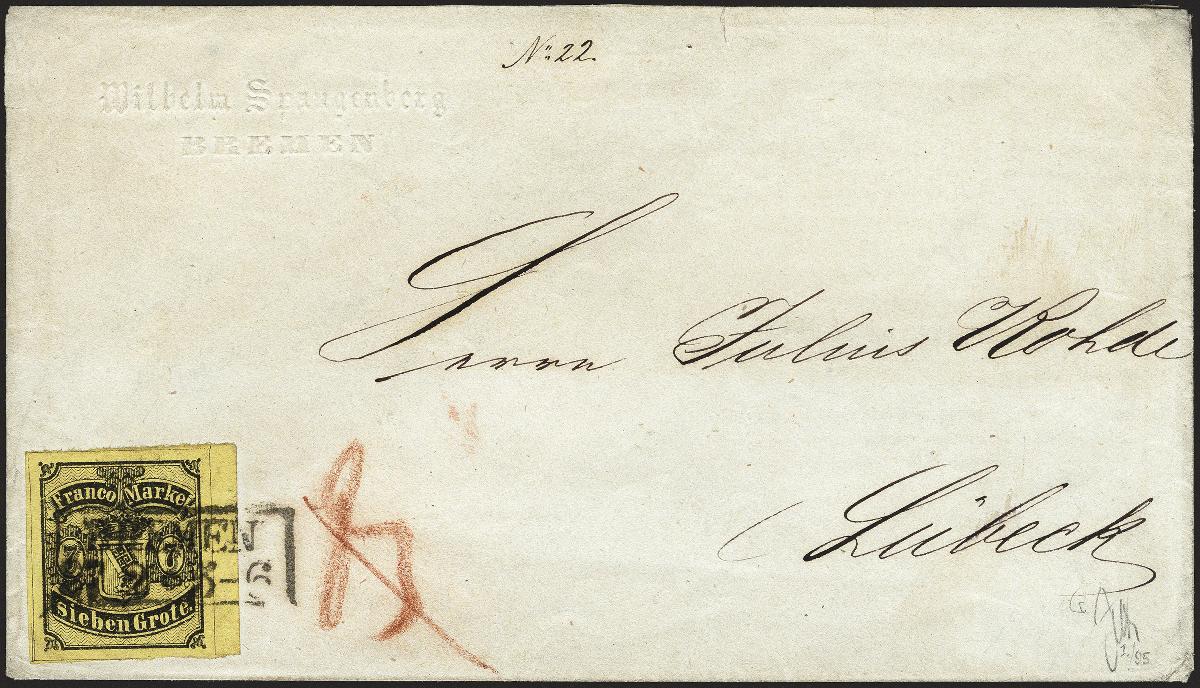 No. 22.
Wilhelm Spangenberg
BREMEN
Herrn Julius Rohde
Lübeck
Franco Marke.
BREMEN
7 7
Sieben Grote.